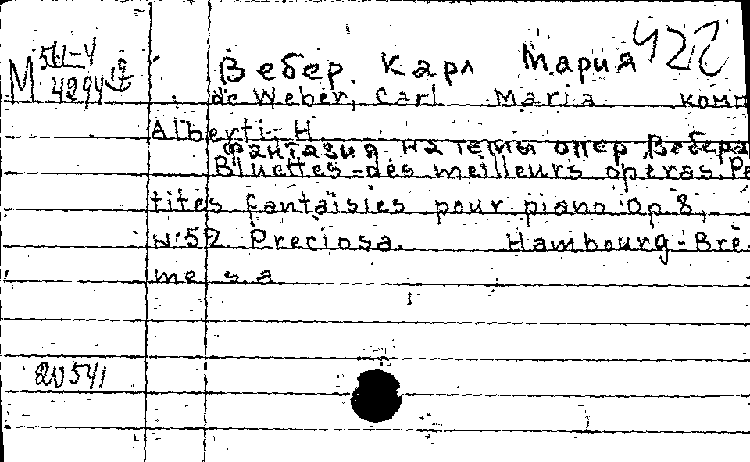 М 5Ц-V 422
4294
Вебер. Карл Мария
de Weber, Carl Maria комп
Alberti-H
Фантазия на темы опер Вебера
Bluettes-des meilleurs operas. Pe
tites fantaisies pour piano. Op 8,
N:52 Preciosa. Hambourg-Brê
me s.a.
20541